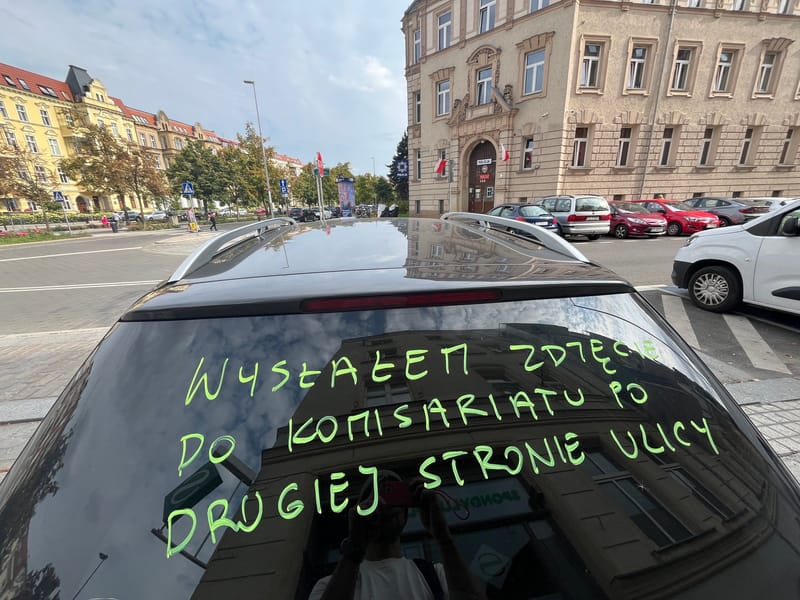 WYSŁAŁEM ZDJĘCIE
DO KOMISARIATU PO
DRUGIEJ STRONIE ULICY